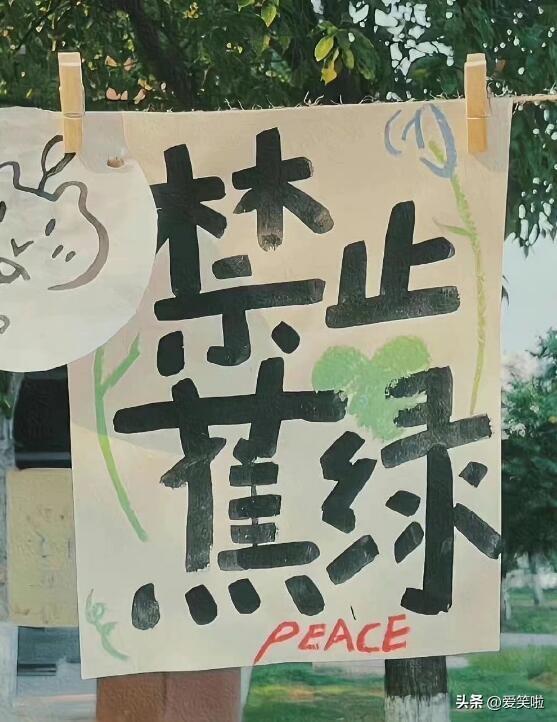 禁止
蕉绿
PEACE
头条 @爱笑啦